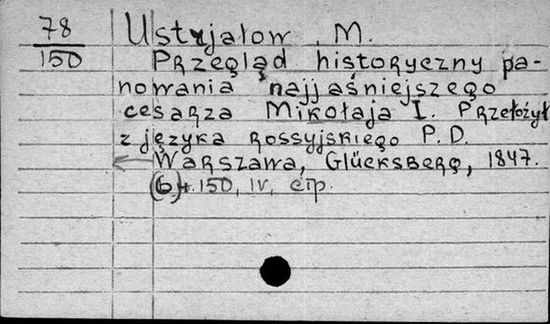 78
150
Ustrjałow, M.
Przegląd historyczny pa-
nowania najjaśniejszego
cesarza Mikołaja I. Przełożył
z języka rossyjskiego P. D.
Warszawa, Glücksberg, 1847.
(6)+ 150, IV, стр.